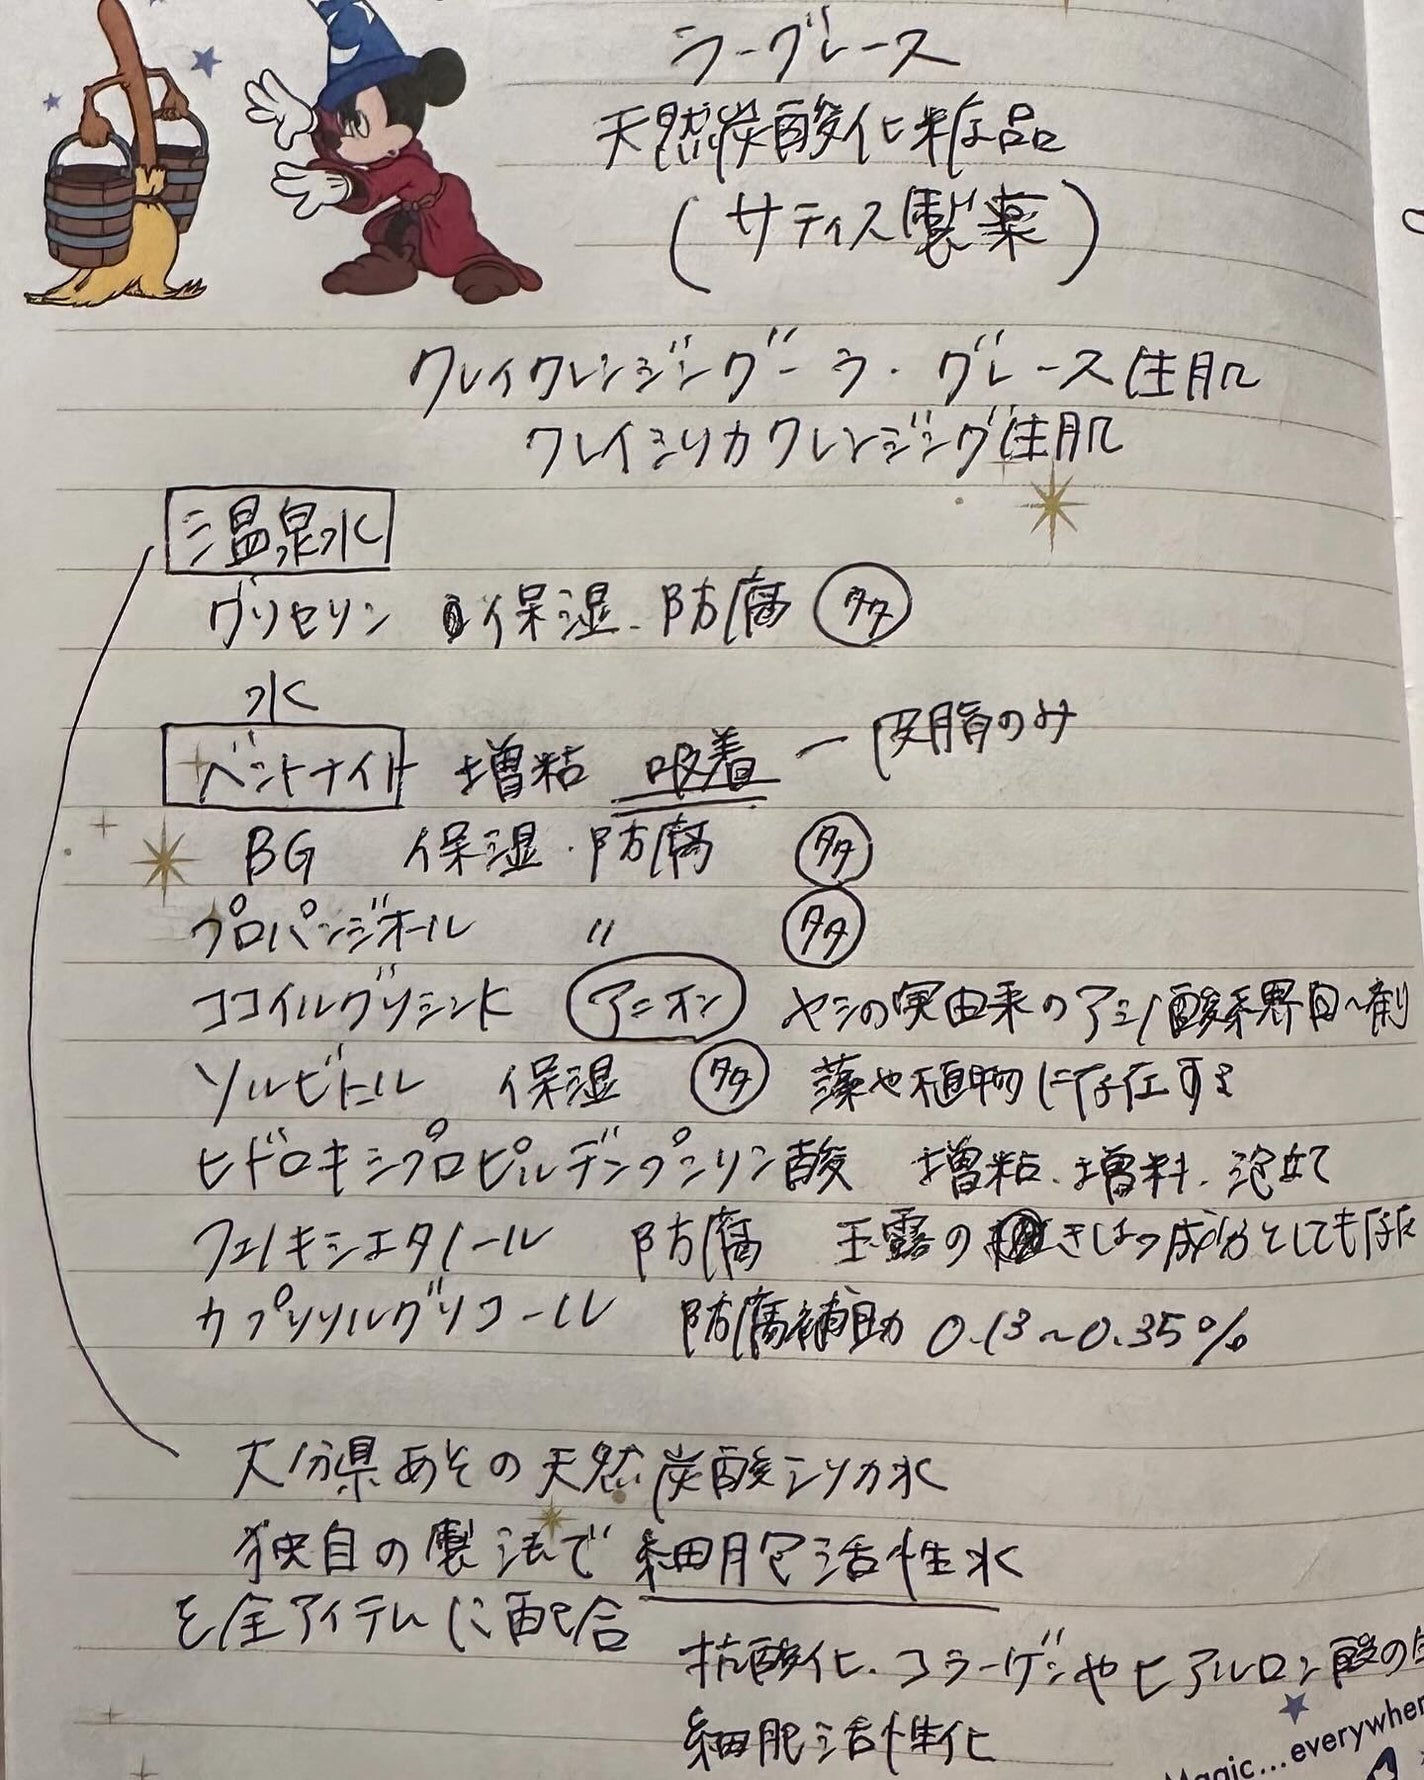 ラーグレース
天然炭酸化粧品
(サティス製薬)
クレイクレンジングー ラ・グレース生肌
クレイシリカクレンジング生肌
温泉水
グリセリン 保湿 防腐 多
水
ベントナイト 増粘 吸着 ー皮脂のみ
BG 保湿・防腐 多
プロパンジオール 〃 多
ココイルグリシンK アニオン ヤシの実由来のアミノ酸系界面〜剤
ソルビトール 保湿 多 藻や植物に存在する
ヒドロキシプロピルデンプンリン酸 増粘、増料、泡立て
フェノキシエタノール 防腐 玉露の きはつ成分としても
カプリリルグリコール 防腐補助 0.13〜0.35%
大分県あその天然炭酸シリカ水
独自の製法で細胞活性水
を全アイテムに配合
抗酸化、コラーゲンやヒアルロン酸の
細胞活性化
Magic...everywhere